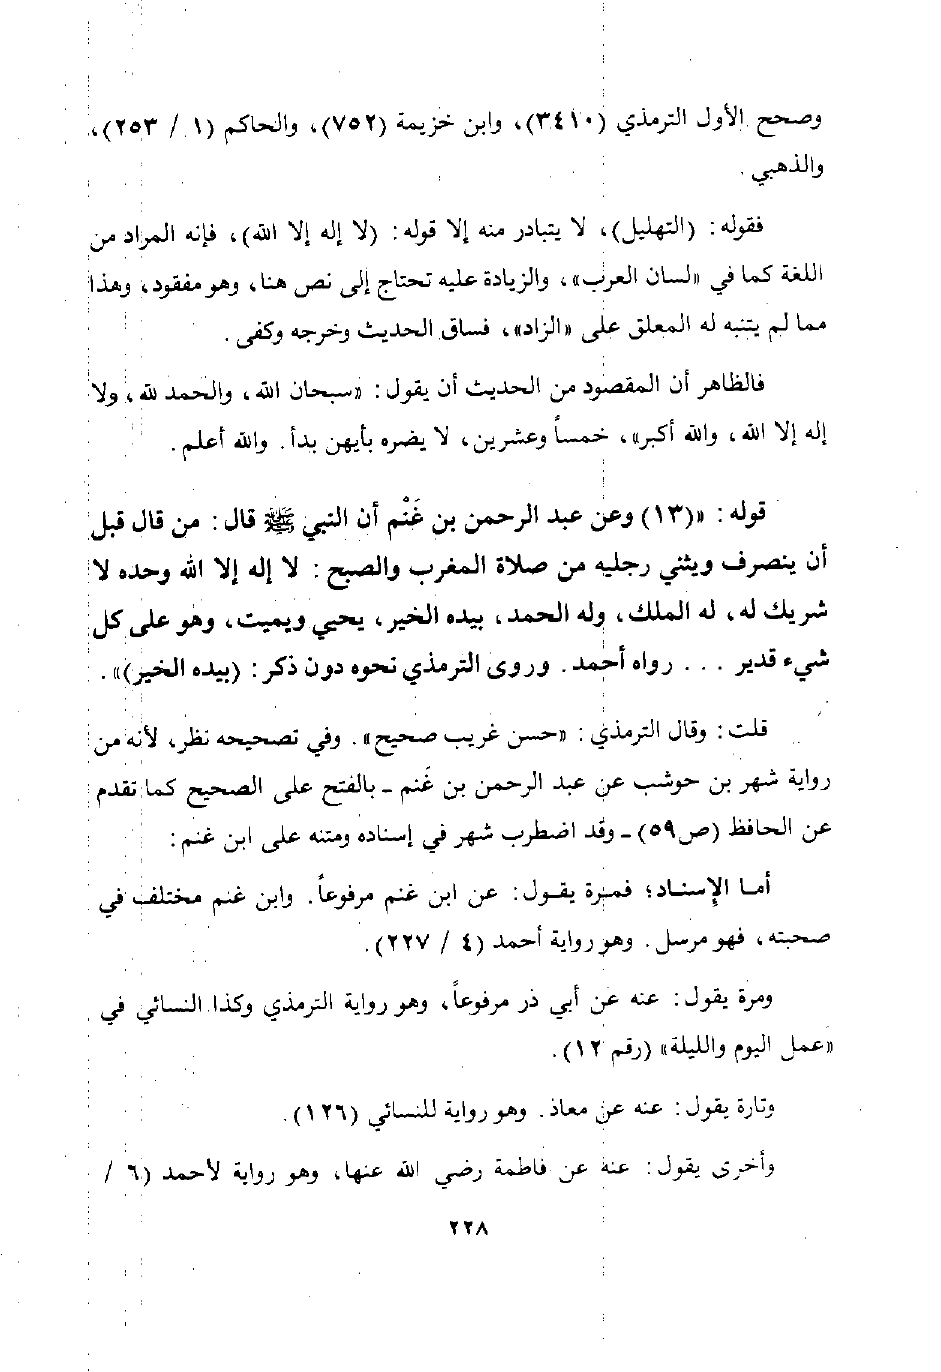 وصحح الأول الترمذي (٣٤١٠)، وابن خزيمة (٧٥٢)، والحاكم (١ / ٢٥٣)،
والذهبي .
فقوله : (التهليل)، لا يتبادر منه إلا قوله : (لا إله إلا الله)، فإنه المراد من
اللغة كما في «لسان العرب»، والزيادة عليه تحتاج إلى نص هنا، وهو مفقود، وهذا
مما لم يتنبه له المعلق على «الزاد»، فساق الحديث وخرجه وكفى .
فالظاهر أن المقصود من الحديث أن يقول : «سبحان الله، والحمد لله، ولا
إله إلا الله، والله أكبر»، خمساً وعشرين، لا يضره بأيهن بدأ. والله أعلم.
قوله : «(١٣) وعن عبد الرحمن بن غَنْم أن النبي ﷺ قال : من قال قبل
أن ينصرف ويثني رجليه من صلاة المغرب والصبح : لا إله إلا الله وحده لا
شريك له، له الملك، وله الحمد، بيده الخير، يحيي ويميت، وهو على كل
شيء قدير . . . رواه أحمد. وروى الترمذي نحوه دون ذكر : (بيده الخير)».
قلت : وقال الترمذي : «حسن غريب صحيح». وفي تصحيحه نظر، لأنه من
رواية شهر بن حوشب عن عبد الرحمن بن غَنم ـ بالفتح على الصحيح كما تقدم
عن الحافظ (ص٥٩) ـ وقد اضطرب شهر في إسناده ومتنه على ابن غنم :
أما الإسناد؛ فمرة يقول : عن ابن غنم مرفوعاً. وابن غنم مختلف في
صحبته، فهو مرسل. وهو رواية أحمد (٤ / ٢٢٧).
ومرة يقول : عنه عن أبي ذر مرفوعاً، وهو رواية الترمذي وكذا النسائي في
«عمل اليوم والليلة» (رقم ١٢).
وتارة يقول : عنه عن معاذ. وهو رواية للنسائي (١٢٦).
وأخرى يقول : عنه عن فاطمة رضي الله عنها، وهو رواية لأحمد (٦ /
٢٢٨